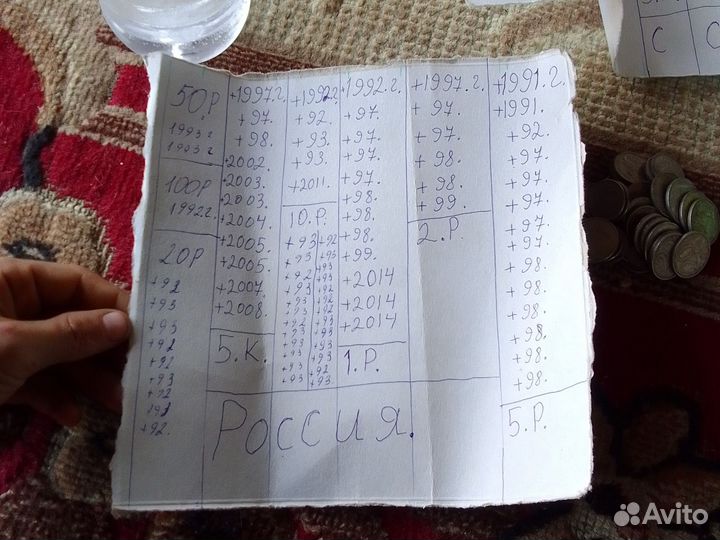 50.Р
1993 г
1993 г
100Р
1992г.
20Р
+92
+93
+93
+92
+92
+93
+92
+93
+92.
+1997.г.
+97.
+98.
+2002.
+2003.
+2003.
+2004.
+2005.
+2005.
+2007.
+2008.
5.К.
+1992г
+92.
+93.
+93.
+2011.
10.Р.
+93 +92
+1992.г.
+97.
+97.
+97.
+97.
+98.
+98.
+98.
+99.
+2014
+2014
+2014
1.Р.
+1997.г.
+97.
+97.
+98.
+98.
+99.
2.Р.
+1991.г.
+1991.
+92.
+97.
+97.
+97.
+97.
+97.
+98.
+98.
+98.
+98.
+98.
+98.
5.Р.
РОССИЯ.
С С
Avito